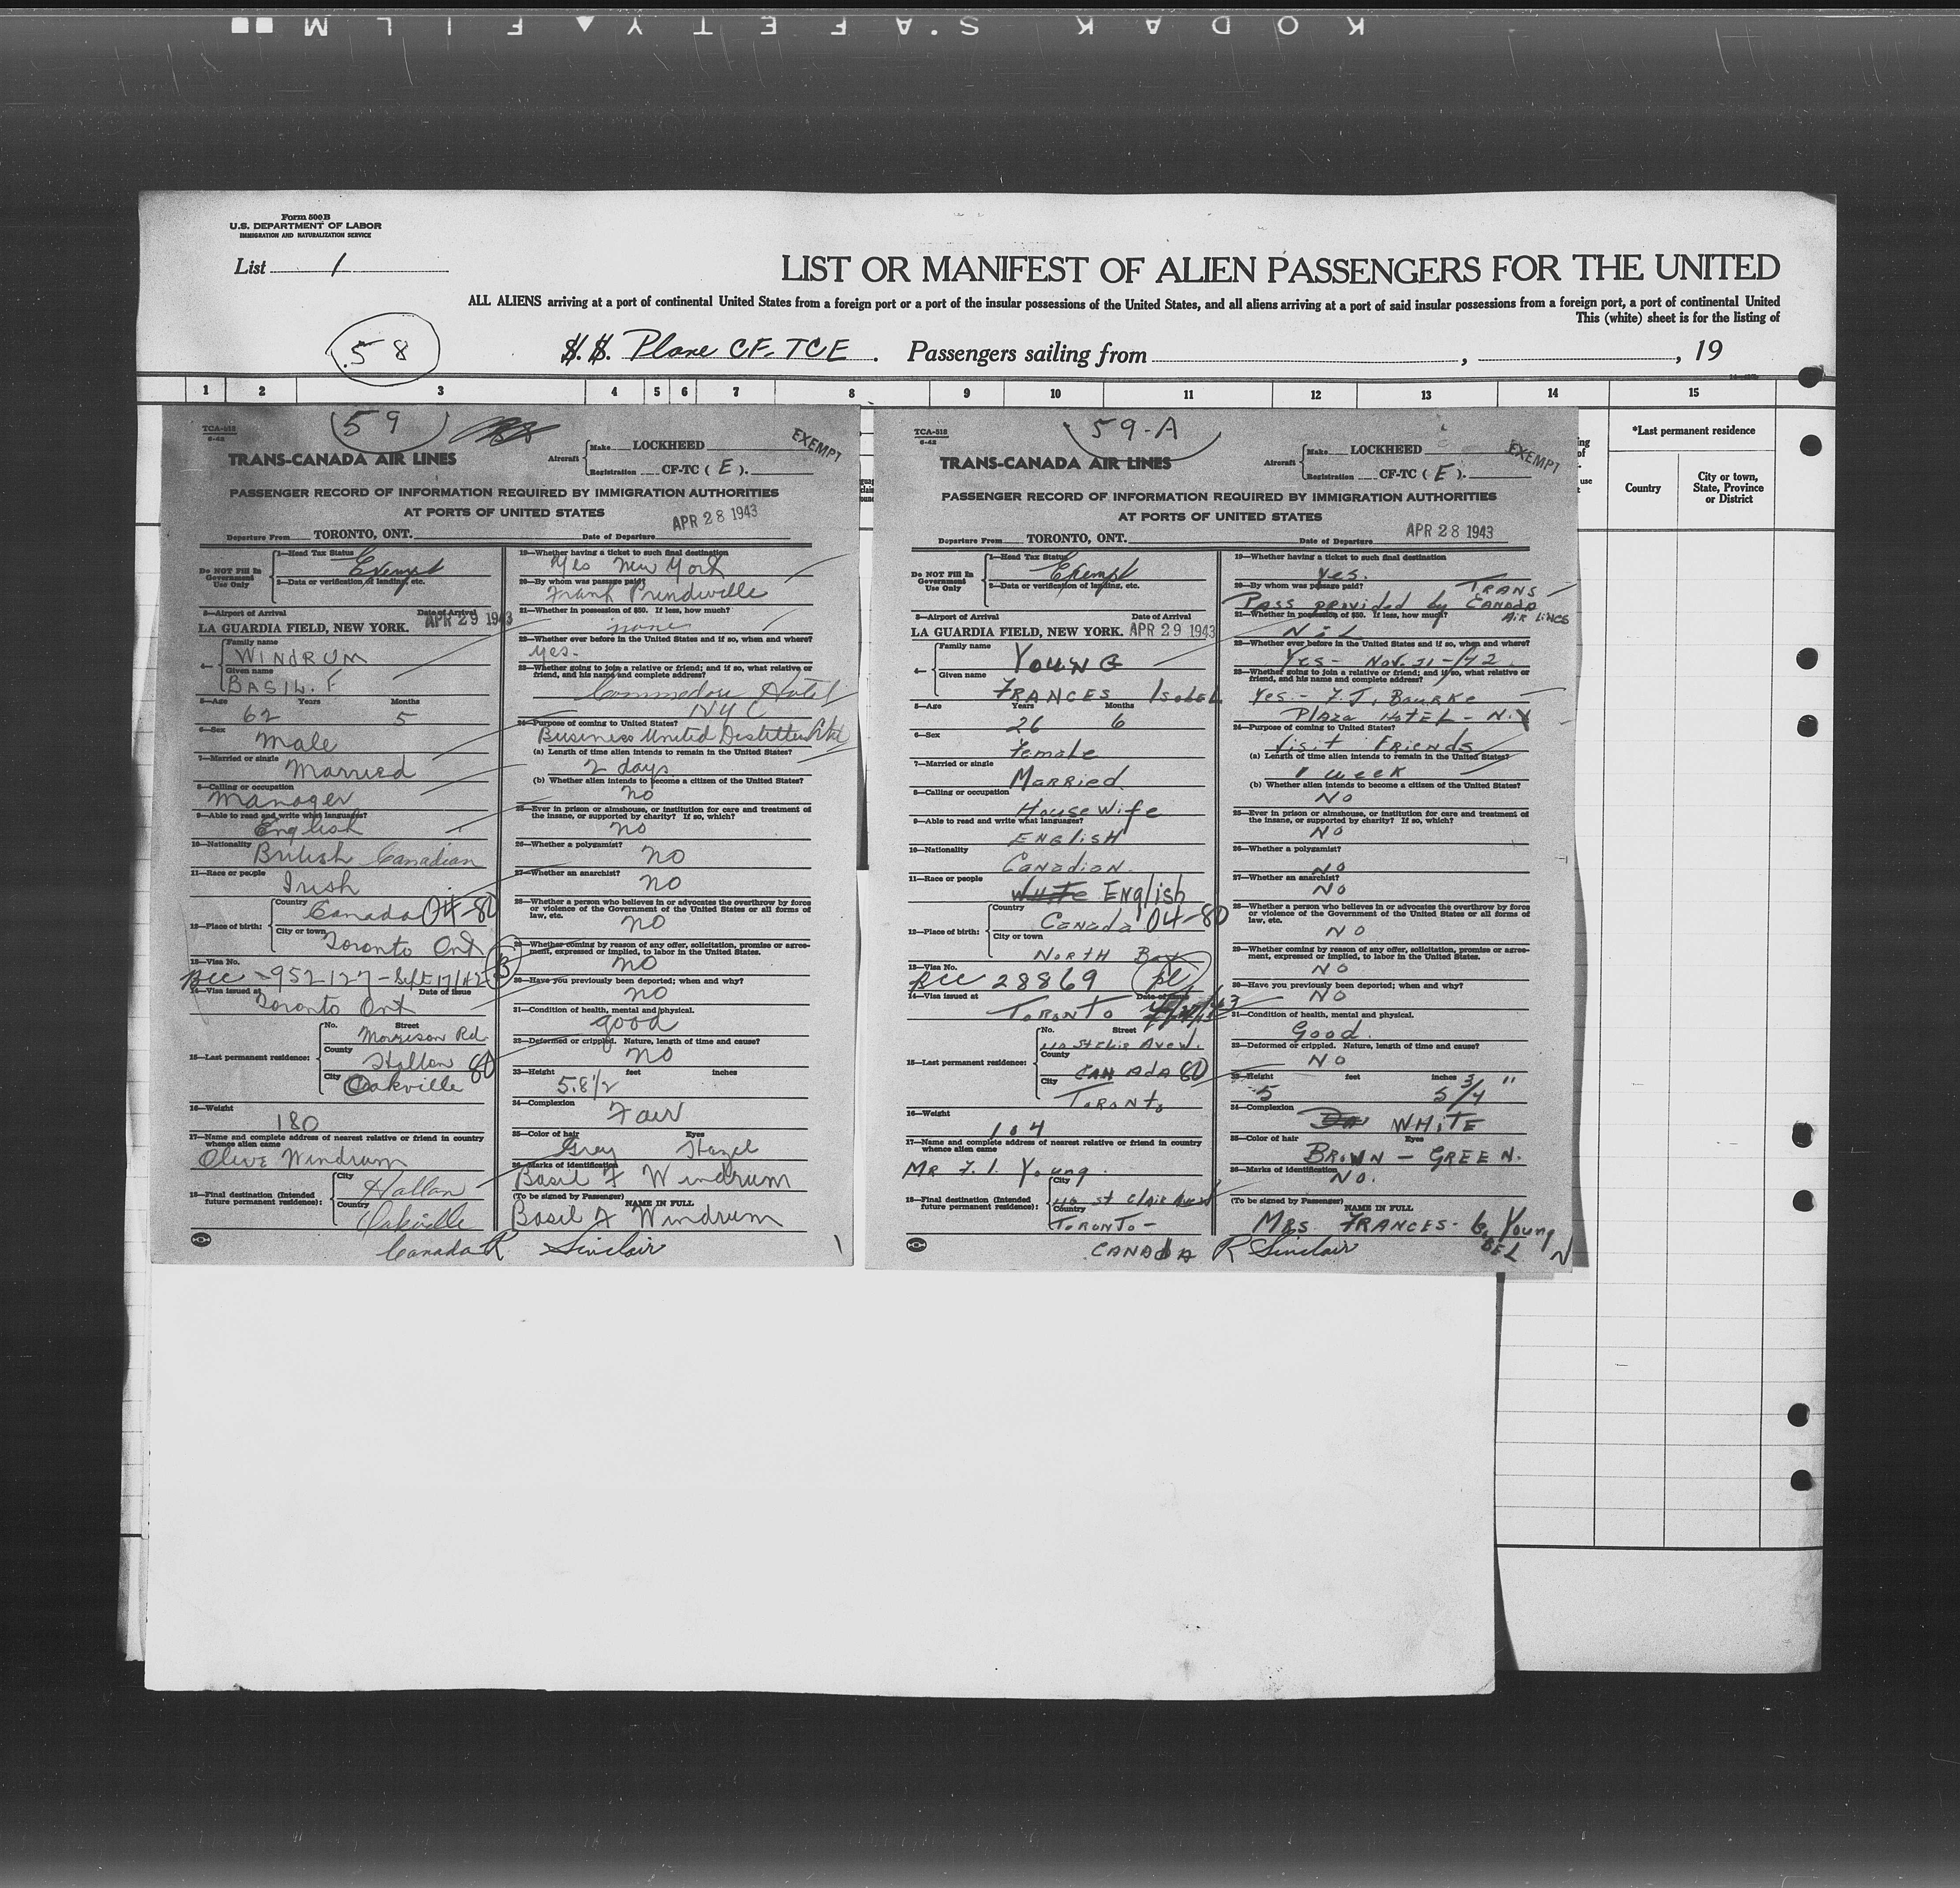 KODAK S.A.FETY FILM
Form 500B
U.S. DEPARTMENT OF LABOR
IMMIGRATION AND NATURALIZATION SERVICE
List 1
LIST OR MANIFEST OF ALIEN PASSENGERS FOR THE UNITED
ALL ALIENS arriving at a port of continental United States from a foreign port or a port of the insular possessions of the United States, and all aliens arriving at a port of said insular possessions from a foreign port, a port of continental United
This (white) sheet is for the listing of
58
S.S. Plane CF-TCE. Passengers sailing from , , 19
1 2 3 4 5 6 7 8 9 10 11 12 13 14 15
*Last permanent residence
Country
City or town, State, Province or District
59
TCA-518
6-42
TRANS-CANADA AIR LINES
Aircraft
Make LOCKHEED
Registration CF-TC ( E ).
EXEMPT
PASSENGER RECORD OF INFORMATION REQUIRED BY IMMIGRATION AUTHORITIES
AT PORTS OF UNITED STATES
APR 28 1943
Departure From TORONTO, ONT. Date of Departure
Do NOT Fill In Government Use Only
1—Head Tax Status
Exempt
2—Data or verification of landing, etc.
3—Airport of Arrival Date of Arrival
LA GUARDIA FIELD, NEW YORK. APR 29 1943
4—
Family name
WINDRUM
Given name
BASIL. F
5—Age Years Months
62 5
6—Sex
Male
7—Married or single
Married
8—Calling or occupation
Manager
9—Able to read and write what languages?
English
10—Nationality
British Canadian
11—Race or people
Irish
12—Place of birth:
Country
Canada 04-80
City or town
Toronto Ont
13—Visa No.
BCC 952127 - Sept 17/42 B
14—Visa issued at Date of issue
Toronto Ont
15—Last permanent residence:
No. Street
Morrison Rd
County
Halton 80
City
Oakville
16—Weight
180
17—Name and complete address of nearest relative or friend in country whence alien came
Olive Windrum
18—Final destination (Intended future permanent residence):
City
Halton
Country
Oakville
Canada
19—Whether having a ticket to such final destination
Yes New York
20—By whom was passage paid?
Frank Prendiville
21—Whether in possession of $50. If less, how much?
none
22—Whether ever before in the United States and if so, when and where?
yes-
23—Whether going to join a relative or friend; and if so, what relative or friend, and his name and complete address?
Commodore Hotel
NYC
24—Purpose of coming to United States?
Business United Distillers
(a) Length of time alien intends to remain in the United States?
2 days
(b) Whether alien intends to become a citizen of the United States?
no
25—Ever in prison or almshouse, or institution for care and treatment of the insane, or supported by charity? If so, which?
no
26—Whether a polygamist?
no
27—Whether an anarchist?
no
28—Whether a person who believes in or advocates the overthrow by force or violence of the Government of the United States or all forms of law, etc.
no
29—Whether coming by reason of any offer, solicitation, promise or agreement, expressed or implied, to labor in the United States.
no
30—Have you previously been deported; when and why?
no
31—Condition of health, mental and physical.
good
32—Deformed or crippled. Nature, length of time and cause?
no
33—Height feet inches
5.8 1/2
34—Complexion
Fair
35—Color of hair Eyes
Grey Hazel
36—Marks of identification
Basil F Windrum
(To be signed by Passenger) NAME IN FULL
Basil F Windrum
R Sinclair
59-A
TCA-518
6-42
TRANS-CANADA AIR LINES
Aircraft
Make LOCKHEED
Registration CF-TC ( E ).
EXEMPT
PASSENGER RECORD OF INFORMATION REQUIRED BY IMMIGRATION AUTHORITIES
AT PORTS OF UNITED STATES
APR 28 1943
Departure From TORONTO, ONT. Date of Departure
Do NOT Fill In Government Use Only
1—Head Tax Status
Exempt
2—Data or verification of landing, etc.
3—Airport of Arrival Date of Arrival
LA GUARDIA FIELD, NEW YORK. APR 29 1943
4—
Family name
YOUNG
Given name
FRANCES ISOBEL
5—Age Years Months
26 6
6—Sex
Female
7—Married or single
Married
8—Calling or occupation
Housewife
9—Able to read and write what languages?
ENGLISH
10—Nationality
Canadian.
11—Race or people
White English
12—Place of birth:
Country
Canada 04-80
City or town
NORTH BAY
13—Visa No.
RCC 28869
14—Visa issued at Date of issue
TORONTO
15—Last permanent residence:
No. Street
110 St Clair Ave W.
County
CANADA 80
City
TORONTO
16—Weight
104
17—Name and complete address of nearest relative or friend in country whence alien came
MR F. I. Young.
18—Final destination (Intended future permanent residence):
City
110 St Clair Ave W
Country
TORONTO-
CANADA
19—Whether having a ticket to such final destination
yes.
20—By whom was passage paid?
Pass provided by TRANS CANADA AIR LINES
21—Whether in possession of $50. If less, how much?
NIL
22—Whether ever before in the United States and if so, when and where?
Yes - Nov. 21-/42
23—Whether going to join a relative or friend; and if so, what relative or friend, and his name and complete address?
Yes. - F. J. Bourke
Plaza HOTEL - N.Y
24—Purpose of coming to United States?
Visit Friends
(a) Length of time alien intends to remain in the United States?
1 week
(b) Whether alien intends to become a citizen of the United States?
No
25—Ever in prison or almshouse, or institution for care and treatment of the insane, or supported by charity? If so, which?
NO
26—Whether a polygamist?
NO
27—Whether an anarchist?
NO
28—Whether a person who believes in or advocates the overthrow by force or violence of the Government of the United States or all forms of law, etc.
NO
29—Whether coming by reason of any offer, solicitation, promise or agreement, expressed or implied, to labor in the United States.
NO
30—Have you previously been deported; when and why?
NO
31—Condition of health, mental and physical.
Good.
32—Deformed or crippled. Nature, length of time and cause?
NO
33—Height feet inches
5 5 3/4 "
34—Complexion
WHITE
35—Color of hair Eyes
BROWN - GREEN.
36—Marks of identification
No.
(To be signed by Passenger) NAME IN FULL
MRS. FRANCES- Young
R Sinclair